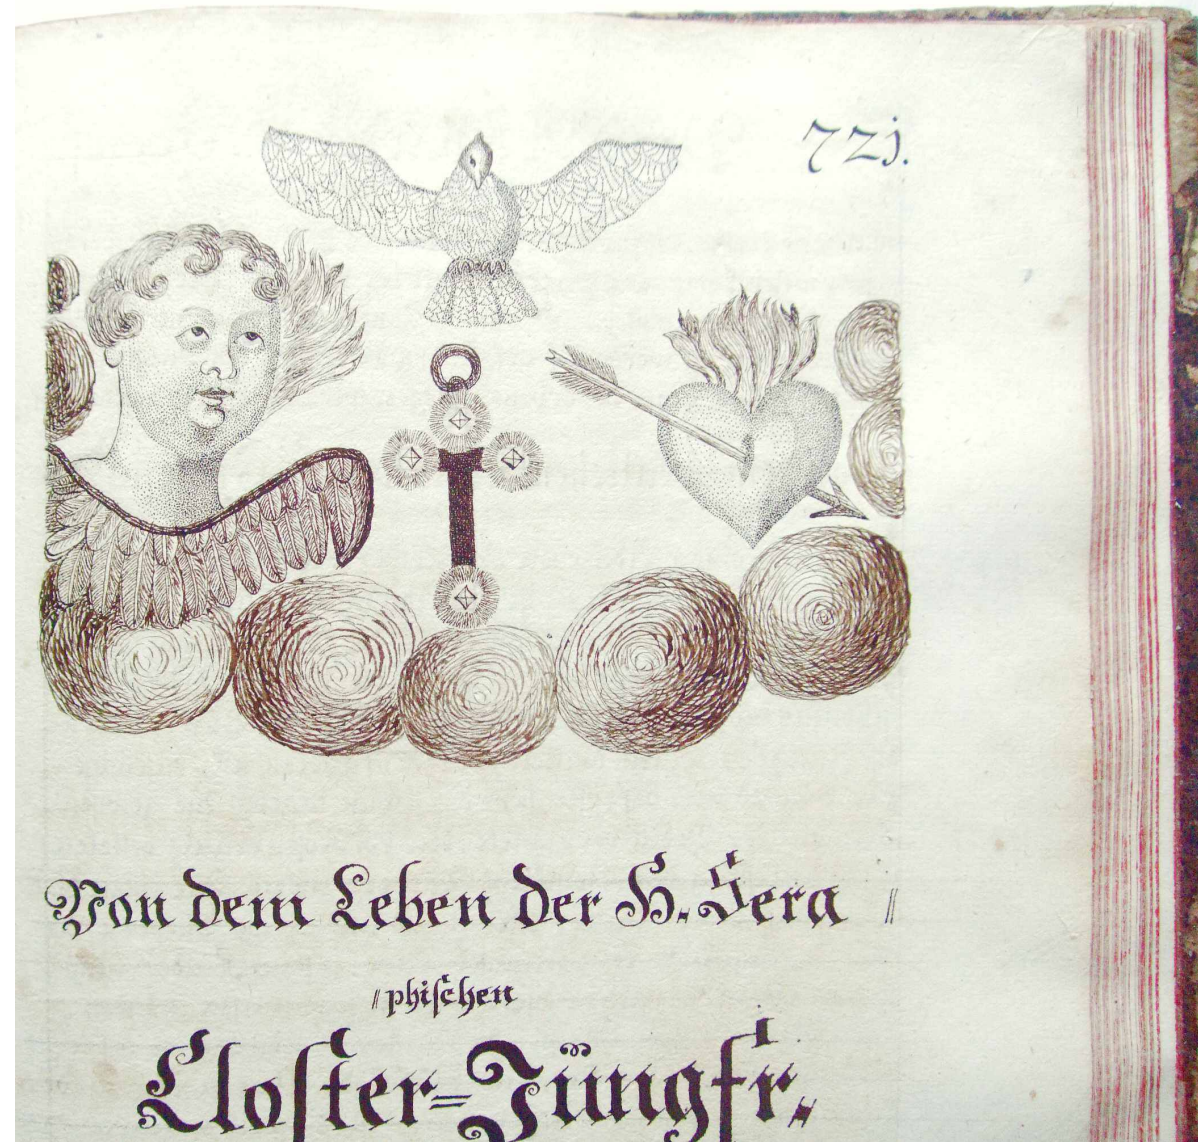 72j.
Von dem Leben der H. Sera〃
〃phischen
Closter=Jüngfr.